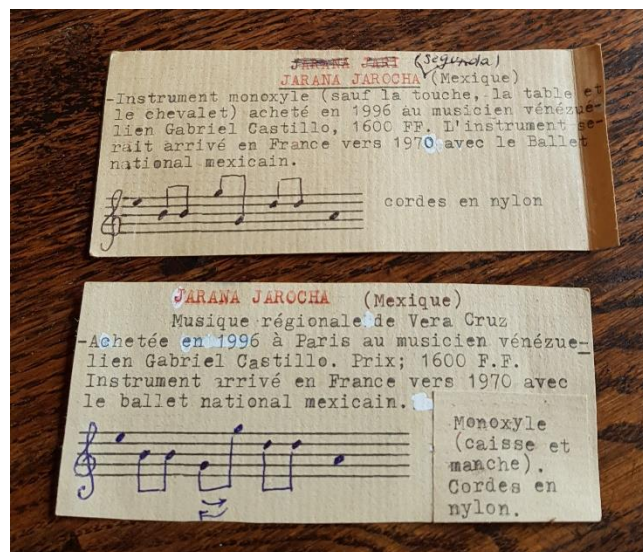 JARANA JARI (Segunda)
JARANA JAROCHA (Mexique)
-Instrument monoxyle (sauf la touche, la table et
le chevalet) acheté en 1996 au musicien vénézué-
lien Gabriel Castillo, 1600 FF. L'instrument se-
rait arrivé en France vers 1970 avec le Ballet
national mexicain.
cordes en nylon
JARANA JAROCHA (Mexique)
Musique régionale de Vera Cruz
-Achetée en 1996 à Paris au musicien vénézue-
lien Gabriel Castillo. Prix; 1600 F.F.
Instrument arrivé en France vers 1970 avec
le ballet national mexicain.
Monoxyle
(caisse et
manche).
Cordes en
nylon.